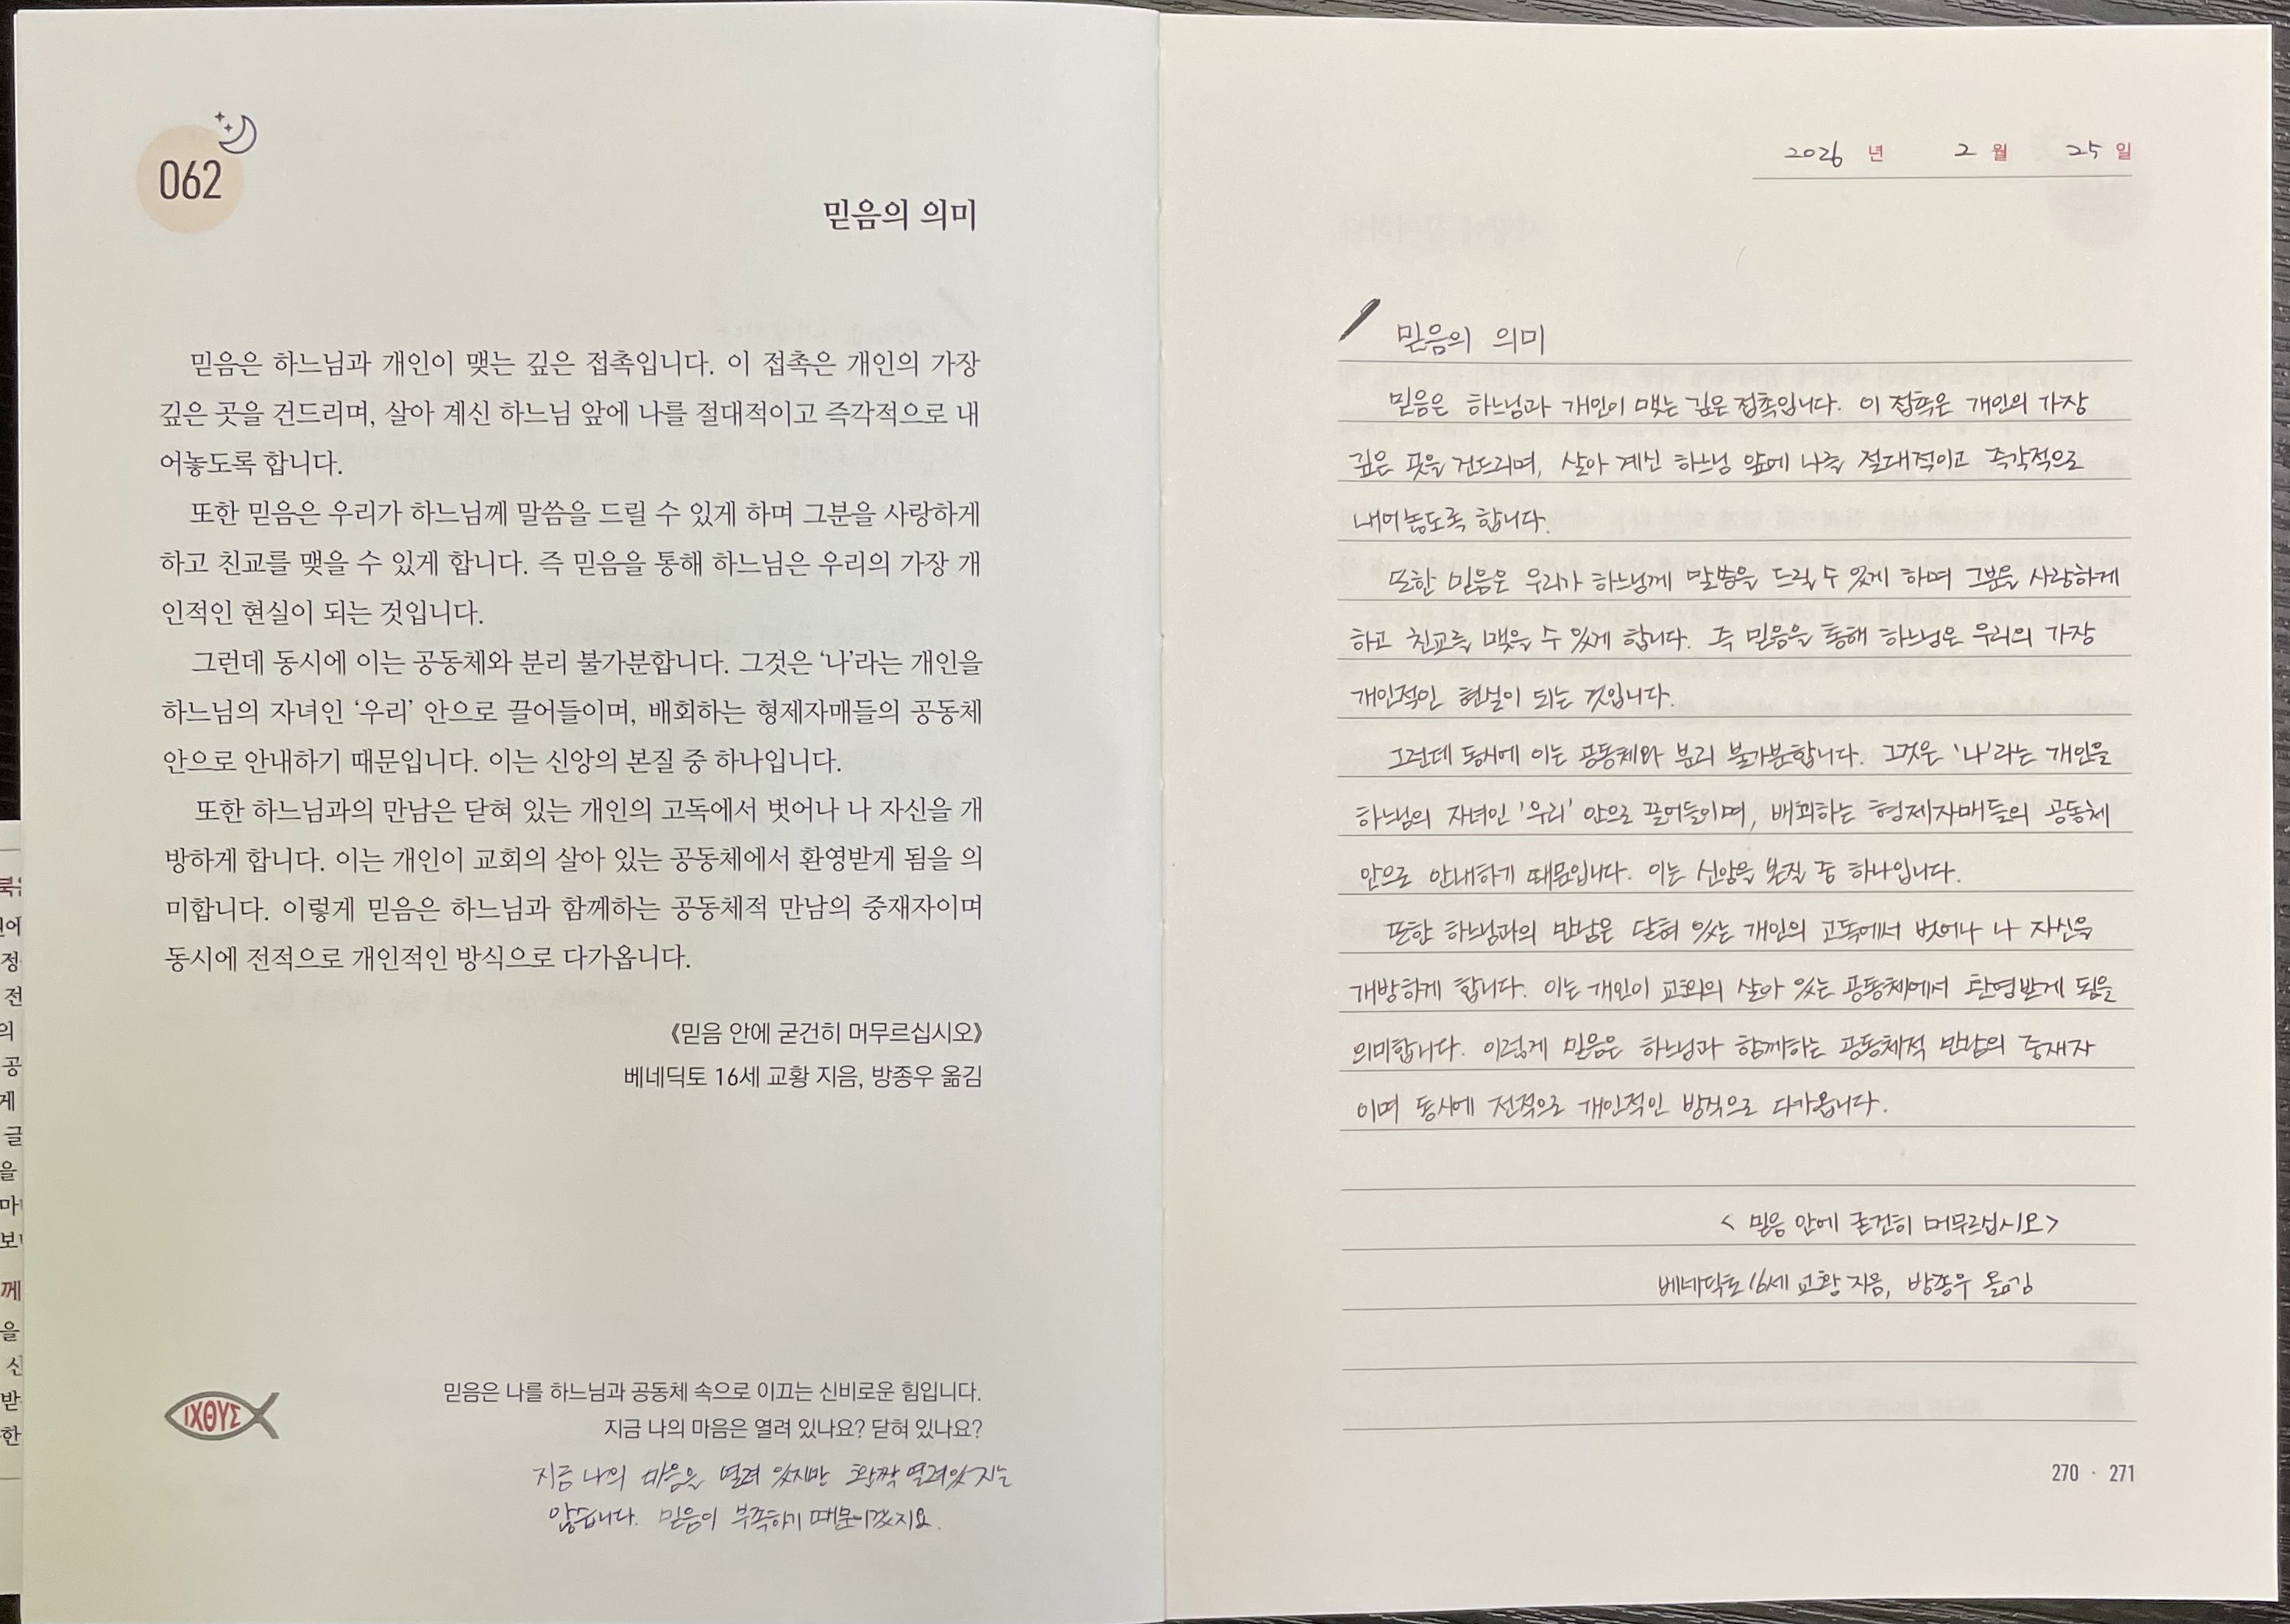 062
믿음의 의미
믿음은 하느님과 개인이 맺는 깊은 접촉입니다. 이 접촉은 개인의 가장
깊은 곳을 건드리며, 살아 계신 하느님 앞에 나를 절대적이고 즉각적으로 내
어놓도록 합니다.
또한 믿음은 우리가 하느님께 말씀을 드릴 수 있게 하며 그분을 사랑하게
하고 친교를 맺을 수 있게 합니다. 즉 믿음을 통해 하느님은 우리의 가장 개
인적인 현실이 되는 것입니다.
그런데 동시에 이는 공동체와 분리 불가분합니다. 그것은 ‘나’라는 개인을
하느님의 자녀인 ‘우리’ 안으로 끌어들이며, 배회하는 형제자매들의 공동체
안으로 안내하기 때문입니다. 이는 신앙의 본질 중 하나입니다.
또한 하느님과의 만남은 닫혀 있는 개인의 고독에서 벗어나 나 자신을 개
방하게 합니다. 이는 개인이 교회의 살아 있는 공동체에서 환영받게 됨을 의
미합니다. 이렇게 믿음은 하느님과 함께하는 공동체적 만남의 중재자이며
동시에 전적으로 개인적인 방식으로 다가옵니다.
《믿음 안에 굳건히 머무르십시오》
베네딕토 16세 교황 지음, 방종우 옮김
ΙΧΘΥΣ
믿음은 나를 하느님과 공동체 속으로 이끄는 신비로운 힘입니다.
지금 나의 마음은 열려 있나요? 닫혀 있나요?
지금 나의 마음은 열려 있지만 활짝 열려있지는
않습니다. 믿음이 부족하기 때문이겠지요.
2026 년 2 월 25 일
믿음의 의미
믿음은 하느님과 개인이 맺는 깊은 접촉입니다. 이 접촉은 개인의 가장
깊은 곳을 건드리며, 살아 계신 하느님 앞에 나를 절대적이고 즉각적으로
내어놓도록 합니다.
또한 믿음은 우리가 하느님께 말씀을 드릴 수 있게 하며 그분을 사랑하게
하고 친교를 맺을 수 있게 합니다. 즉 믿음을 통해 하느님은 우리의 가장
개인적인 현실이 되는 것입니다.
그런데 동시에 이는 공동체와 분리 불가분합니다. 그것은 '나'라는 개인을
하느님의 자녀인 '우리' 안으로 끌어들이며, 배회하는 형제자매들의 공동체
안으로 안내하기 때문입니다. 이는 신앙을 본질 중 하나입니다.
또한 하느님과의 만남은 닫혀 있는 개인의 고독에서 벗어나 나 자신을
개방하게 합니다. 이는 개인이 교회의 살아 있는 공동체에서 환영받게 됨을
의미합니다. 이렇게 믿음은 하느님과 함께하는 공동체적 만남의 중재자
이며 동시에 전적으로 개인적인 방식으로 다가옵니다.
< 믿음 안에 굳건히 머무르십시오>
베네딕토 16세 교황 지음, 방종우 옮김
270 · 271